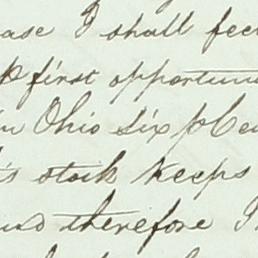 ase I shall feel
first opportun
in Ohio six plea
's stock keeps
and therefore I